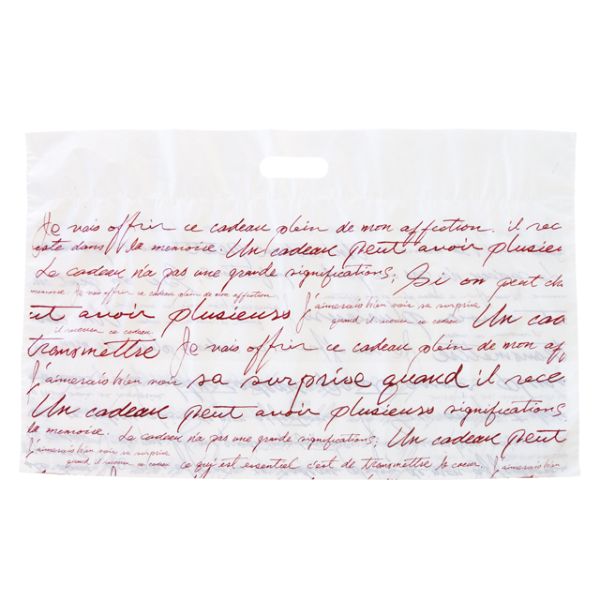 Je vais offrir ce cadeau plein de mon affection. il rec
este dans la memoire. Un cadeau peut avoir plusieu
Le cadeau n'a pas une grande significations; Si on peut cha
memoire. Je vais offrir ce cadeau plein de mon affection
ut avoir plusieurs J'aimerais bien voir sa surprise
il recever ce cadeau quand il recever ce cadeau Un cad
transmettre Je vais offrir ce cadeau plein de mon aff
J'aimerais bien voir sa surprise quand il rece
Un cadeau peut avoir plusieurs significations
la memoire. Le cadeau n'a pas une grande significations; Un cadeau peut
J'aimerais bien voir sa surprise
quand il recever ce cadeau ce qui est essentiel c'est de transmettre le coeur. J'aimerais bien